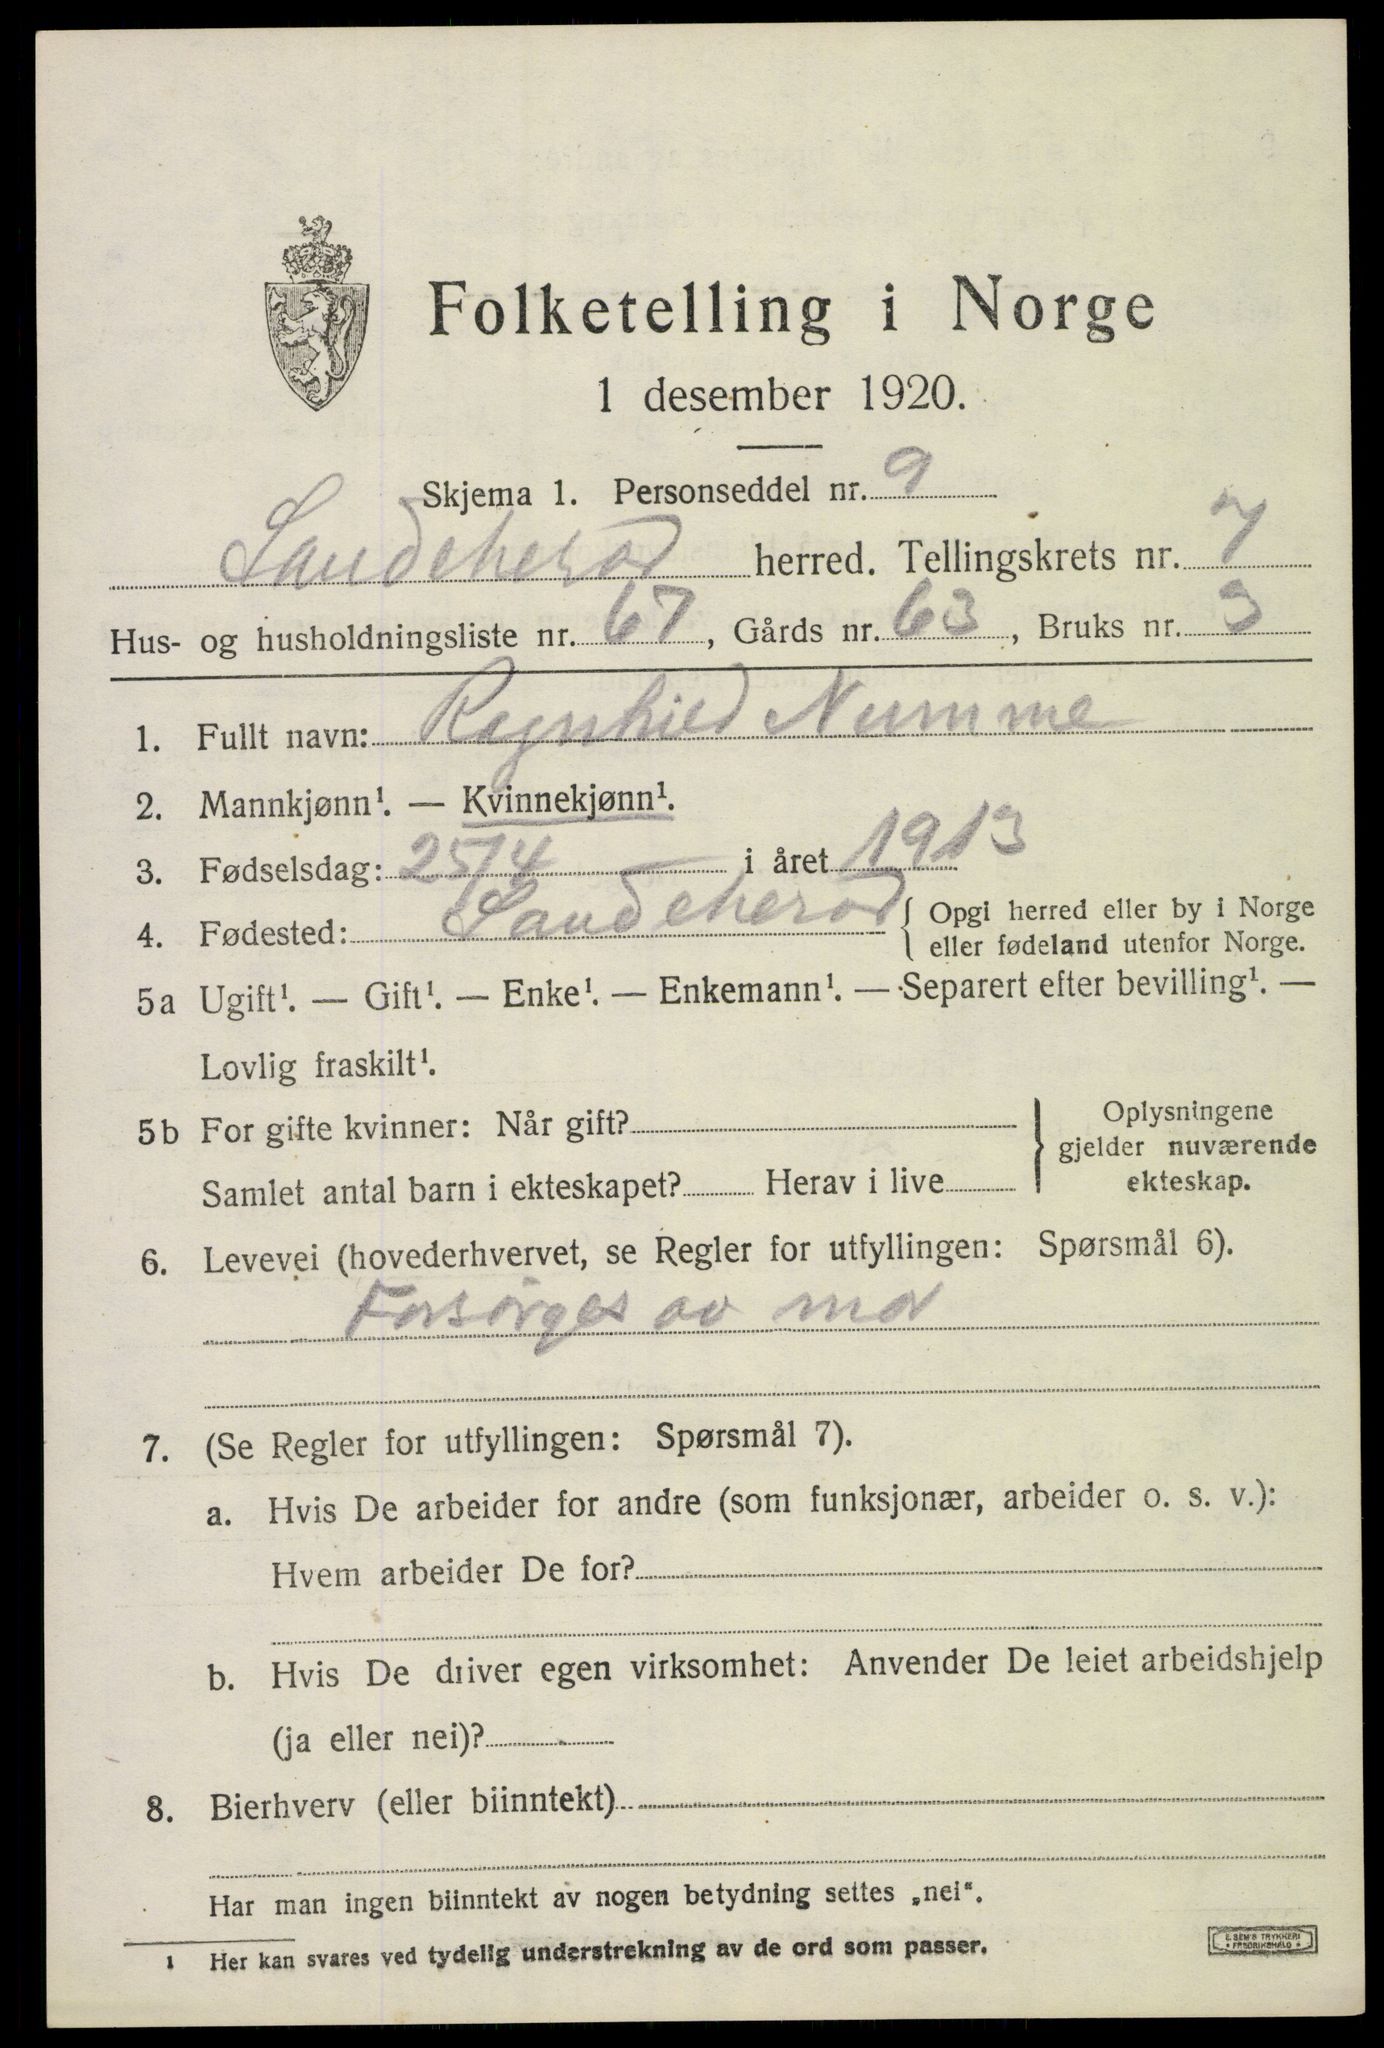 Folketelling i Norge
1 desember 1920.
Skjema 1. Personseddel nr. 9
Sandeherad herred. Tellingskrets nr. 7
Hus- og husholdningsliste nr. 67, Gårds nr. 63, Bruks nr. 3
1. Fullt navn: Ragnhild Numme
2. Mannkjønn¹. — Kvinnekjønn¹.
3. Fødselsdag: 25/4 i året 1913
4. Fødested: Sandeherad { Opgi herred eller by i Norge
eller fødeland utenfor Norge.
5a Ugift¹. — Gift¹. — Enke¹. — Enkemann¹. — Separert efter bevilling¹. —
Lovlig fraskilt¹.
5b For gifte kvinner: Når gift?
Samlet antal barn i ekteskapet? Herav i live
} Oplysningene
gjelder nuværende
ekteskap.
6. Levevei (hovederhvervet, se Regler for utfyllingen: Spørsmål 6).
Forsørges av mor
7. (Se Regler for utfyllingen: Spørsmål 7).
a. Hvis De arbeider for andre (som funksjonær, arbeider o. s. v.):
Hvem arbeider De for?
b. Hvis De driver egen virksomhet: Anvender De leiet arbeidshjelp
(ja eller nei)?
8. Bierhverv (eller biinntekt)
Har man ingen biinntekt av nogen betydning settes „nei“.
1 Her kan svares ved tydelig understrekning av de ord som passer.
E. SEM'S TRYKKERI
* FREDRIKSHALD *